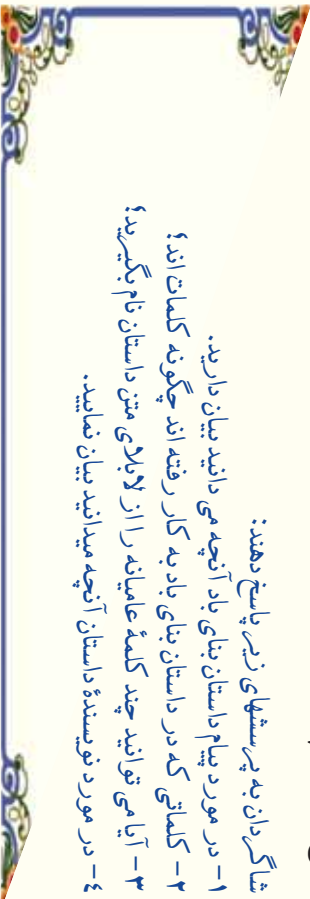 شاگردان به پرسشهای زیر پاسخ دهند:
۱- در مورد پیام داستان بنای باد آنچه می دانید بیان دارید.
۲- کلماتی که در داستان بنای باد به کار رفته اند چگونه کلمات اند؟
۳- آیا می توانید چند کلمۀ عامیانه را از لابلای متن داستان نام بگیرید؟
٤- در مورد نویسندۀ داستان آنچه میدانید بیان نمایید.